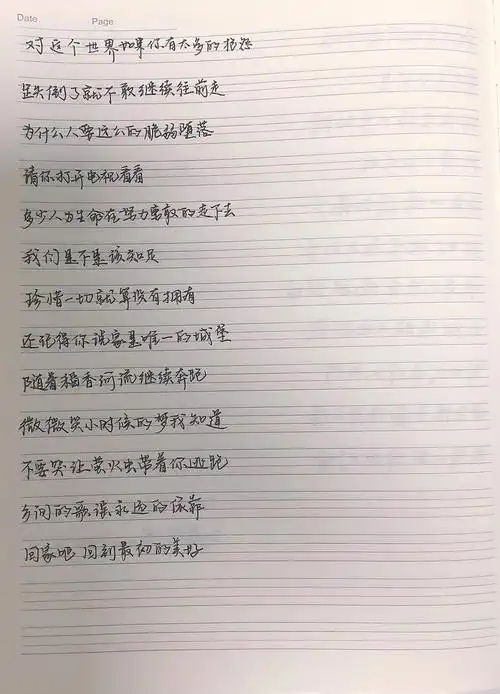 Date Page
对这个世界如果你有太多的抱怨
跌倒了就不敢继续往前走
为什么人要这么的脆弱堕落
请你打开电视看看
多少人为生命在努力勇敢的走下去
我们是不是该知足
珍惜一切就算没有拥有
还记得你说家是唯一的城堡
随着稻香河流继续奔跑
微微笑小时候的梦我知道
不要哭让萤火虫带着你逃跑
乡间的歌谣永远的依靠
回家吧 回到最初的美好